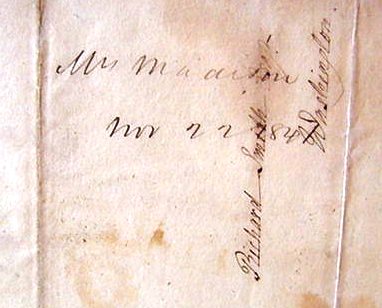 Mrs Madison
Nov 22 184
Richard Smith
Washington.